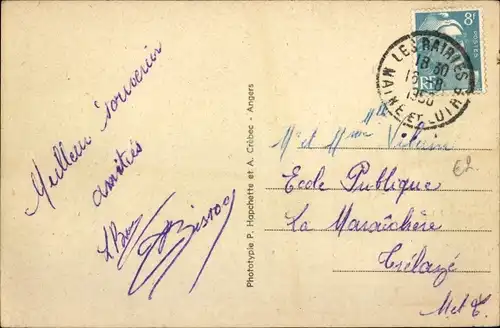 8f
LES RAIRIES
18 30
1950
MAINE ET LOIRE
Meilleur souvenir
amitiés
Phototypie P. Hapchette et A. Crébec - Angers
Mlle
Mr et Mme Vilain
Ecole Publique
La Maraîchère
Trélazé
M et L